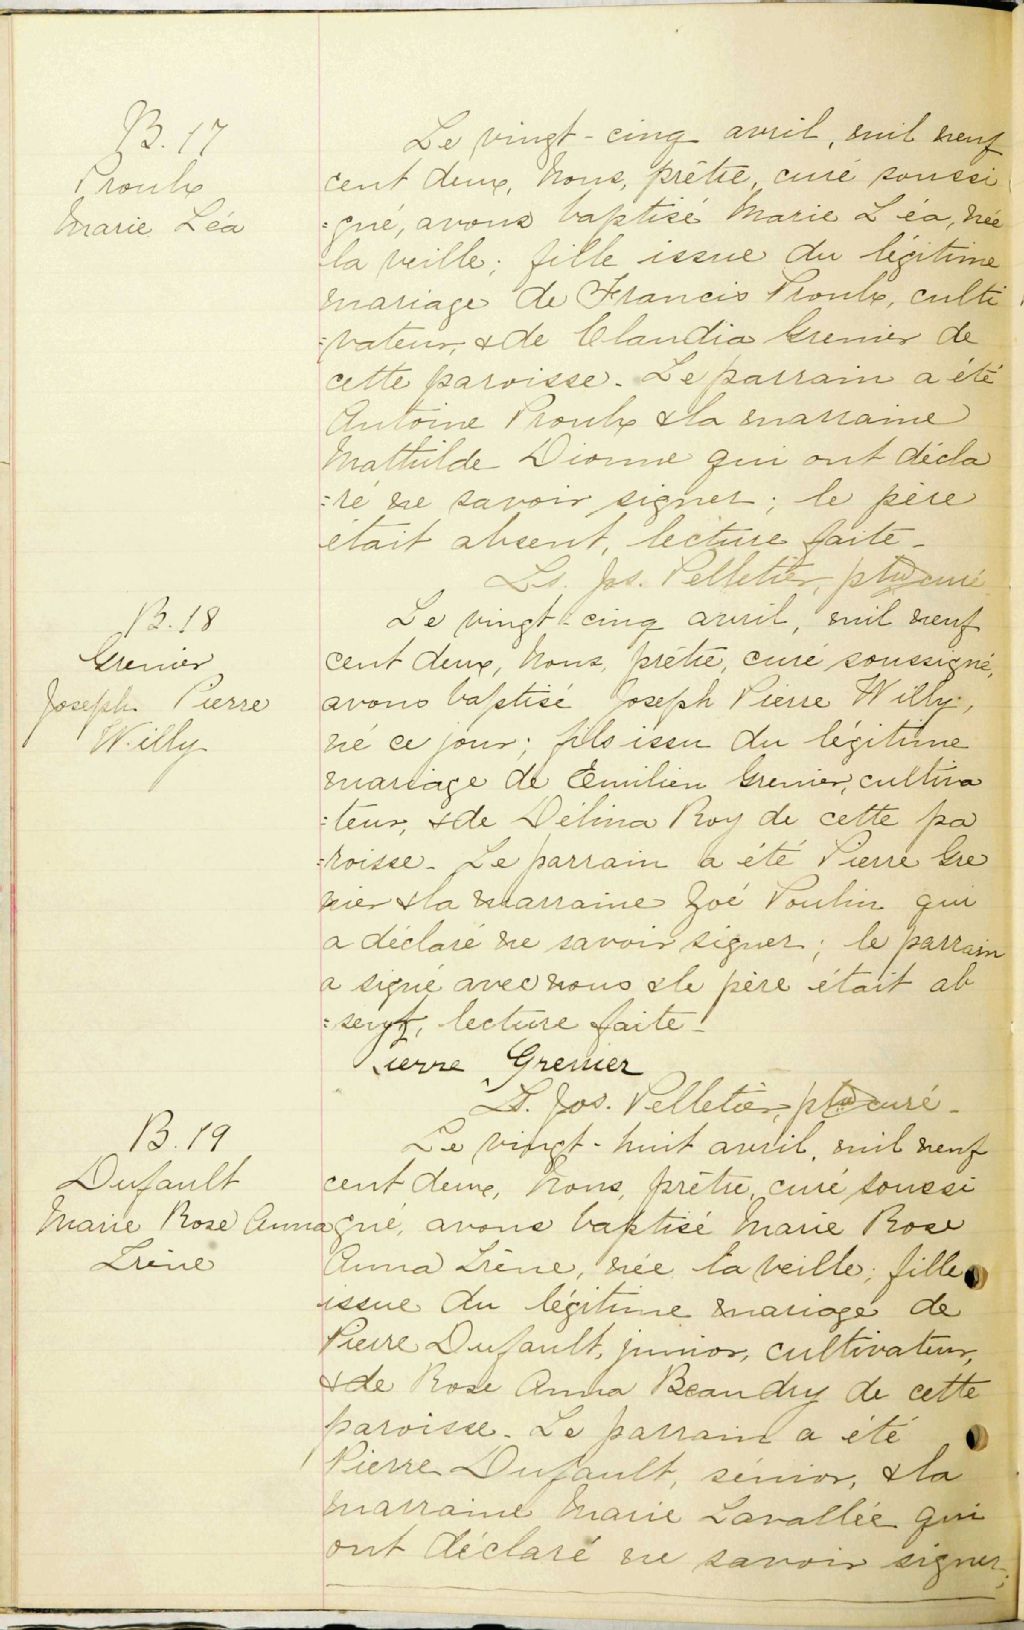 B. 17
Proulx
Marie Léa
Le vingt-cinq avril, mil neuf
cent deux, Nous, prêtre, curé soussi
=gné, avons baptisé Marie Léa, née
la veille; fille issue du légitime
mariage de Francis Proulx, culti
=vateur, & de Claudia Grenier de
cette paroisse. Le parrain a été
Antoine Proulx & la marraine
Mathilde Dionne qui ont décla
=ré ne savoir signer; le père
était absent, lecture faite -
Ls. Jos. Pelletier, ptre curé
B. 18
Grenier
Joseph Pierre
Willy
Le vingt-cinq avril, mil neuf
cent deux, Nous, prêtre, curé soussigné,
avons baptisé Joseph Pierre Willy,
né ce jour; fils issu du légitime
mariage de Emilien Grenier, cultiva
=teur, & de Délina Roy de cette pa
=roisse. Le parrain a été Pierre Gre
nier & la marraine Zoé Poulin qui
a déclaré ne savoir signer; le parrain
a signé avec nous & le père était ab
=sent, lecture faite -
Pierre Grenier
Ls. Jos. Pelletier, ptre curé -
B. 19
Dufault
Marie Rose Anna
Irène
Le vingt-huit avril, mil neuf
cent deux, Nous, prêtre, curé soussi
gné, avons baptisé Marie Rose
Anna Irène, née la veille; fille
issue du légitime mariage de
Pierre Dufault, junior, cultivateur,
& de Rose Anna Beaudry de cette
paroisse. Le parrain a été
Pierre Dufault, sénior, & la
marraine Marie Lavallée qui
ont déclaré ne savoir signer;